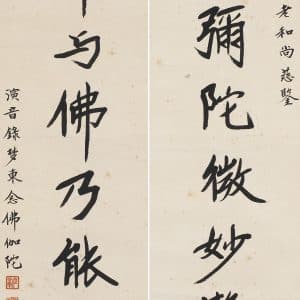 老和尚慈鑒
彌陀微妙
与佛乃能
演音錄梦東念佛伽陀